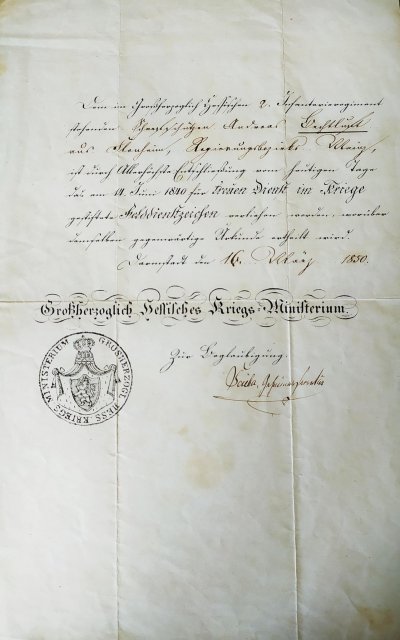 Dem im Großherzoglich Hessischen 2. Infanterieregiment
stehenden Scharfschützen Andreas Bechtluft
aus Ilonheim, Regierungsbezirks Mainz,
ist durch Allerhöchste Entschließung vom heutigen Tage
das am 14. Juni 1840 für treuen Dienst im Kriege
gestiftete Felddienstzeichen verliehen worden, worüber
demselben gegenwärtige Urkunde ertheilt wird.
Darmstadt den 16. März 1850.
Großherzoglich Hessisches Kriegs-Ministerium.
Zur Beglaubigung.
Geheimersecretär
GROSHERZOGL. HESS. KRIEGS MINISTERIUM